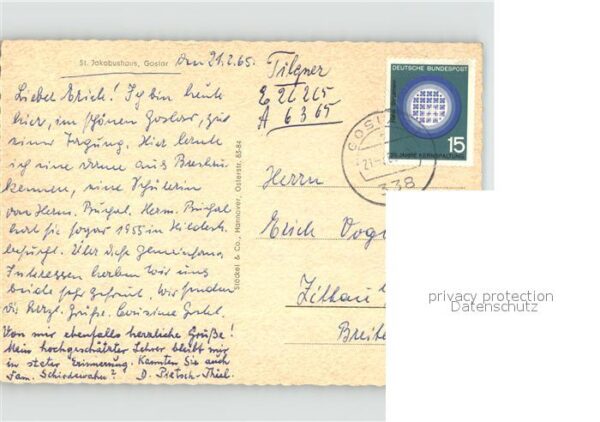 St. Jakobushaus, Goslar
den 21.2.65.
Tilgner
E 26 2 65
A 6 3 65
Lieber Erich! Ich bin heute
hier, im schönen Goslar, zu
einer Tagung. Hier lernte
ich eine Dame aus Breslau
kennen, eine Schülerin
von Herm. Buchal. Herm. Buchal
hat sie sogar 1955 in Hildesh.
besucht. Über die gemeinsamen
Interessen haben wir uns
beide sehr gefreut. Wir senden
dir herzl. Grüße.
Von mir ebenfalls herzliche Grüße!
Mein hochgeschätzter Lehrer bleibt mir
in steter Erinnerung. Kannten Sie auch
Fam. Schirdewahn? D. Pietsch-Thiel.
Stäckel & Co., Hannover, Osterstr. 83-84
DEUTSCHE BUNDESPOST
15
25 JAHRE KERNSPALTUNG
338
Herrn
Erich Vog
Zittau
Breite
privacy protection
Datenschutz